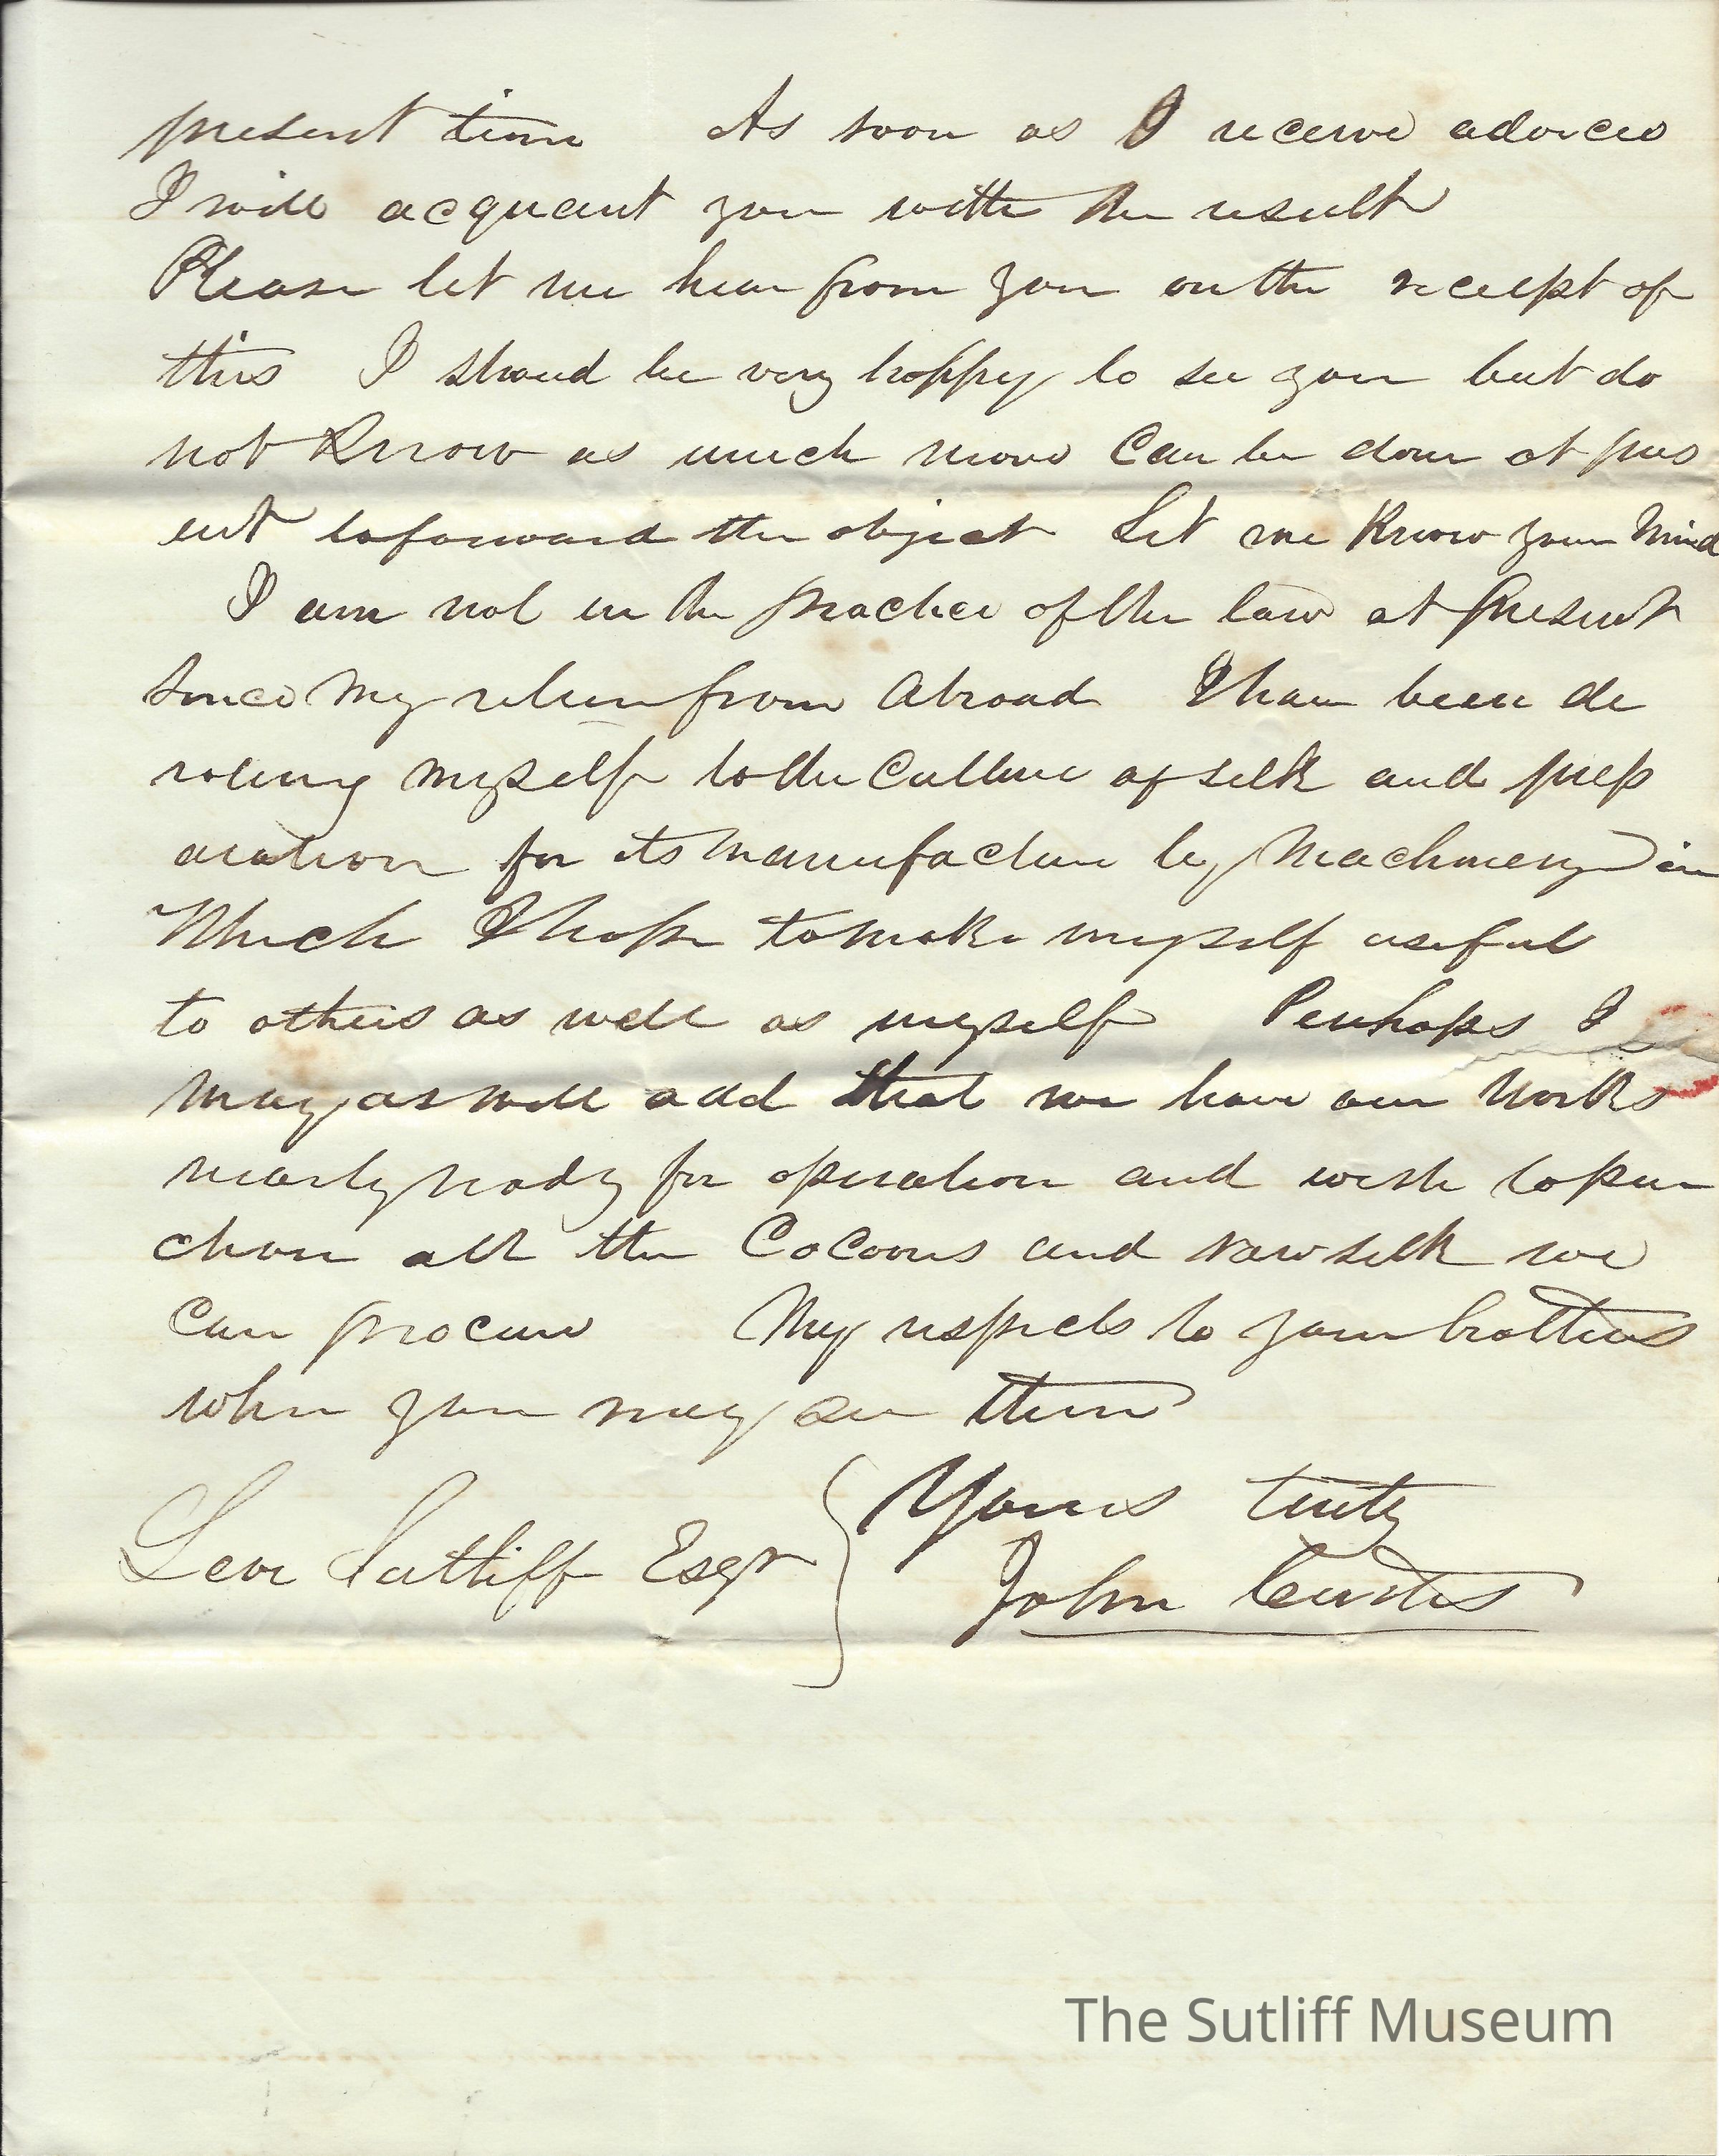 present time As soon as I receive advices
I will acquaint you with the result
Please let me hear from you on the receipt of
this I shoud be very happy to see you but do
not Know as much more Can be done at pres
ent to forward the object Let me Know your Mind
I am not in the practice of the law at present
Since My return from Abroad I have been de
voting myself to the Culture of silk and prep
aration for its manufacture by Machinery in
Which I hope to make myself useful
to others as well as myself Perhaps I
may as well add that we have our Works
nearly ready for operation and wish to pur
chase all the Cocoons and raw silk we
Can procure My respects to your brothers
when you may see them
Yours truly
Levi Sutliff Esqr
John Curtis
The Sutliff Museum